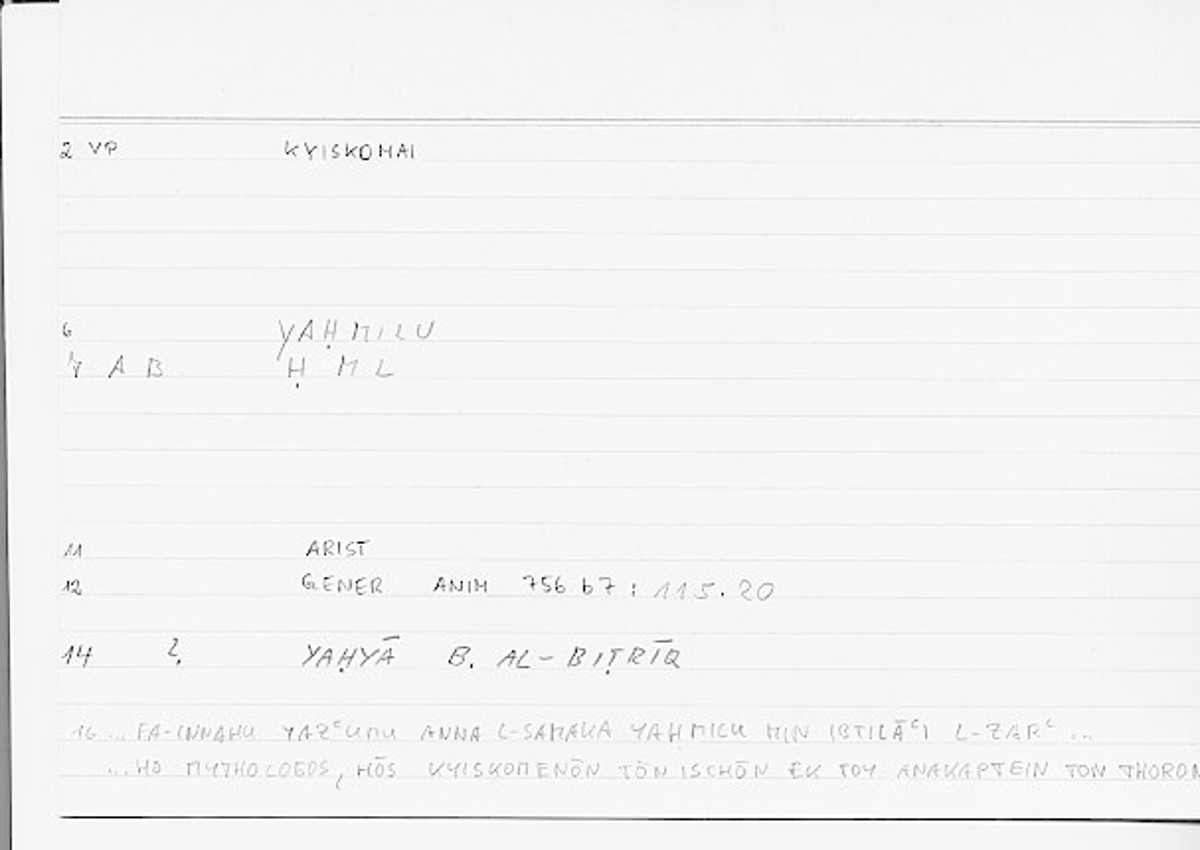 2 VP KYISKOMAI
6 YAḤMILU
7 A B Ḥ M L
11 ARIST
12 GENER ANIM 756 b7 : 115.20
14 ?. YAḤYĀ B. AL-BIṬRĪQ
16 ... FA-INNAHU YAZʿUMU ANNA L-SAMAKA YAḤMILU MIN IBTILĀʿI L-ZARʿ ...
... HO MYTHOLOGOS, HŌS KYISKOMENŌN TŌN ISCHŌN EK TOY ANAKAPTEIN TON THORON